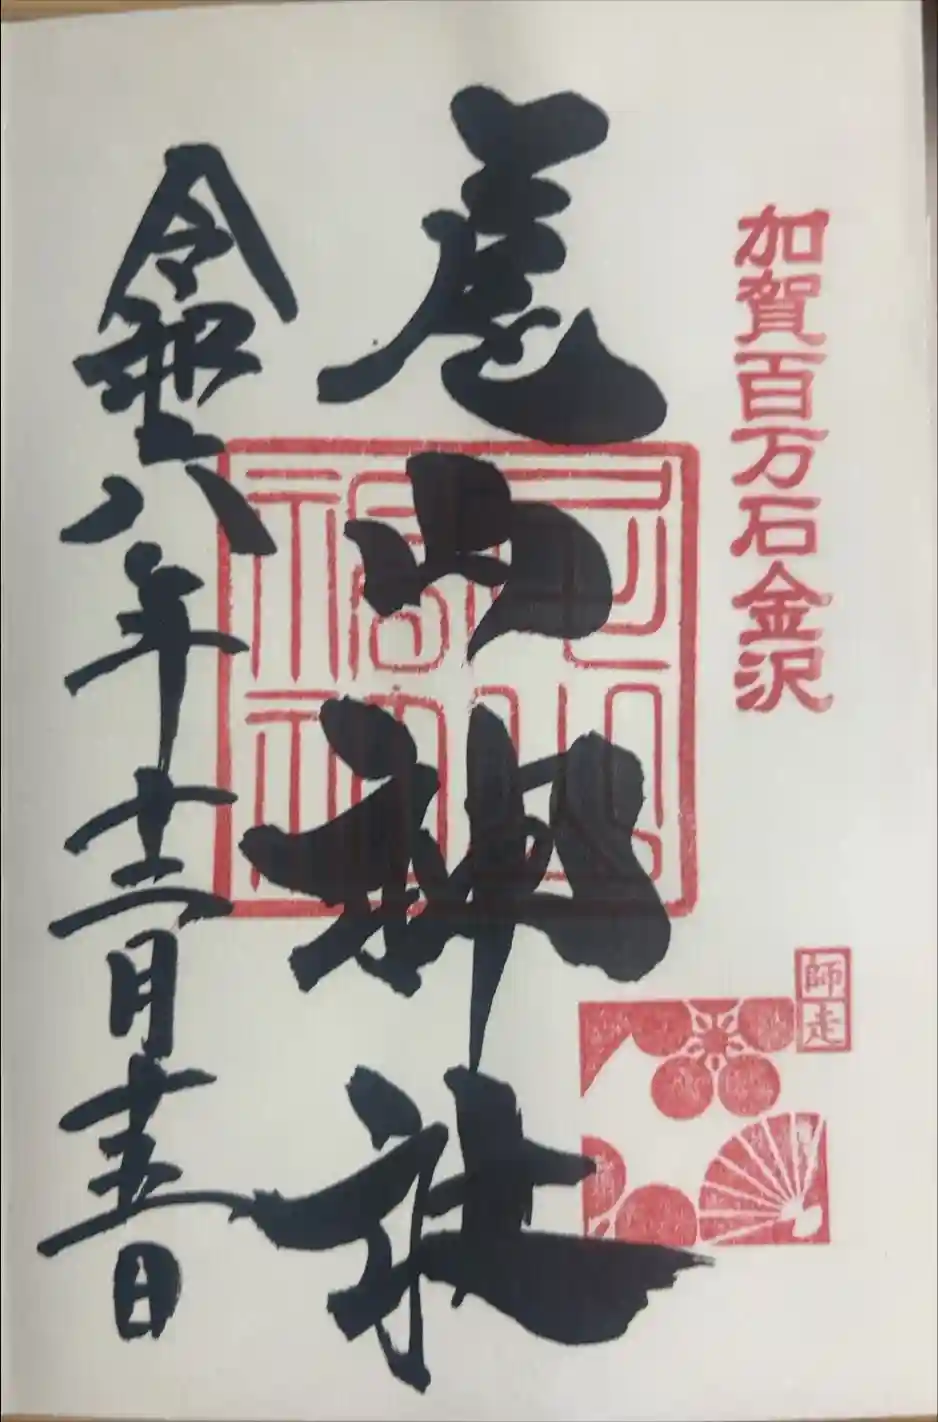 加賀百万石金沢
師走
尾山神社
尾山神社
令和八年十二月十五日